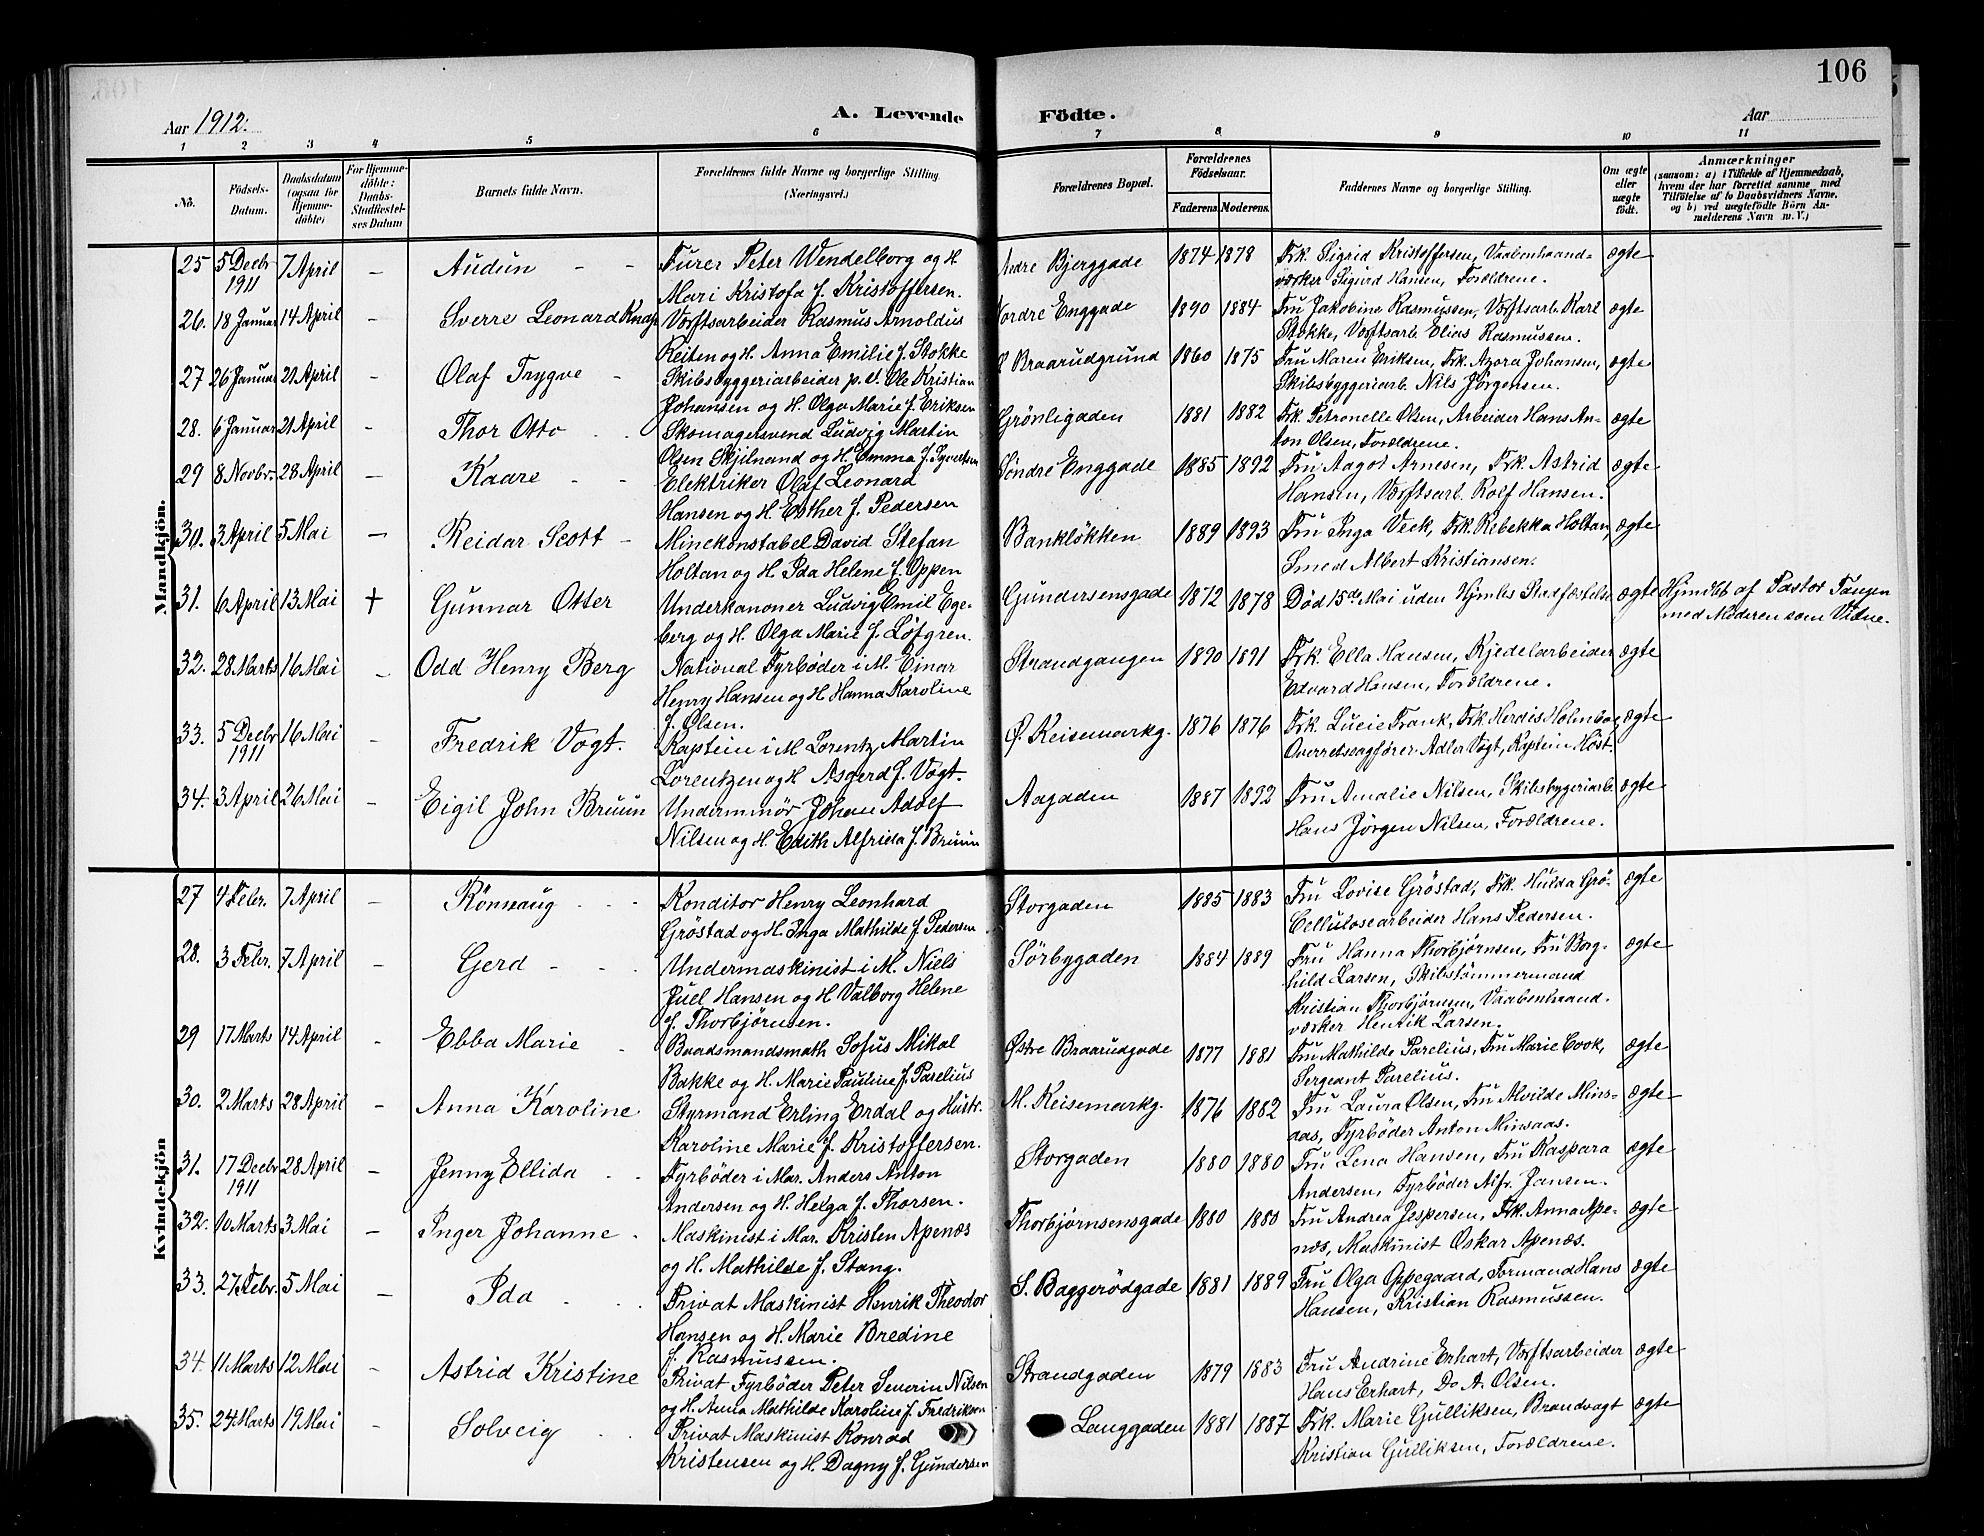 106
Aar 1912.
A. Levende
Födte.
Aar
1
2
3
4
5
6
7
8
9
10
11
No.
Fødsels-
Datum.
Daabsdatum
(ogsaa for
Hjemme-
döbte)
For Hjemme-
döbte:
Daabs-
Stadfæstel-
ses Datum
Barnets fulde Navn.
Forældrenes fulde Navne og borgerlige Stilling
(Næringsvei.)
Forældrenes Bopæl.
Forældrenes
Födselsaar.
Faderens.
Moderens.
Faddernes Navne og borgerlige Stilling.
Om ægte
eller
uægte
født.
Anmærkninger
(saasom: a) i Tilfælde af Hjemmedaab,
hvem der har forrettet samme med
Tilföielse af to Daabsvidners Navne,
og b) ved uægtefödte Börn An-
melderens Navn m. V.)
Mandkjön.
25 5 Decbr 7 April - Audun - - Furer Peter Wendelborg og H. Andre Bjerggade 1874 1878 Frk. Sigrid Kristoffersen, Vaabenhaand- ægte
1911 Mari Kristofa f. Kristoffersen. værker Sigurd Hansen, Forældrene.
26. 18 Januar 14 April - Sverre Leonard Knap Værftsarbeider Rasmus Arnoldus Nordre Enggade 1890 1884 Fru Jakobine Rasmussen, Værftsarb. Karl ægte
Reiten og H. Anna Emilie f. Stokke Stokke, Værftsarb. Elias Rasmussen.
27 26 Januar 21 April - Olaf Trygve - Skibsbyggeriarbeider p. d. Ole Kristian Braarudgrund 1860 1875 Fru Maren Eriksen, Frk. Azora Johansen, ægte
Johansen og H. Olga Marie f. Eriksen Skibsbyggeriarb. Nils Jørgensen.
28. 6 Januar 21 April - Thor Otto - - Skomagersvend Ludvig Martin Grönligaden 1881 1882 Frk. Petronelle Olsen, Arbeider Hans An- ægte
Olsen Skjilnand og H. Emma f. Syvertsen ton Olsen, Forældrene.
29 8 Novbr. 28 April - Kaare - - Elektriker Olaf Leonard Søndre Enggade 1885 1892 Fru Aagot Arnesen, Frk. Astrid ægte
Hansen og H. Esther f. Pedersen Hansen, Værftsarb. Rolf Hansen.
30. 3 April 5 Mai - Reidar Scott - Minekonstabel David Stefan Bankløkken 1889 1893 Fru Inga Veek, Frk. Rebekka Holtan, ægte
Holtan og H. Ida Helene f. Oppen Smed Albert Kristiansen.
31. 6 April 13 Mai + Gunnar Otter Underkanoner Ludvig Emil Ege- Gundersensgade 1872 1878 Död 15de Mai uden Hjmbs Stadfæstelse ægte Hjmdbt af Pastor Tangen
berg og H. Olga Marie f. Löfgren. med Moderen som Vidne.
32. 28 Marts 16 Mai - Odd Henry Berg National Fyrbøder i M. Einar Strandgangen 1890 1891 Frk. Ella Hansen, Kjedelarbeider ægte
Henry Hansen og H. Hanna Karoline Edvard Hansen, Forældrene.
f. Olsen.
33. 5 Decbr 16 Mai - Fredrik Vogt. Kaptein i M. Lorentz Martin Ø. Keisemarkg. 1876 1876 Frk. Lucie Frank, Frk Herdis Holmboe ægte
1911 Lorentzen og H. Asgerd f. Vogt. Overretssagfører Adler Vogt, Kaptein Höst.
34. 3 April 26 Mai - Eigil John Bruun Underminör Johan Adolf Aagaden 1887 1892 Fru Amalie Nilsen, Skibsbygeriarb. ægte
Nilsen og H. Edith Alfrida f. Bruun Hans Jørgen Nilsen, Forældrene.
Kvindekjön
27 4 Febr. 7 April - Rönnaug - - - Konditor Henry Leonhard Storgaden 1885 1883 Fru Lovise Gröstad, Frk. Hulda Grö- ægte
Gröstad og H. Inga Mathilde f. Pedersen Cellulosearbeider Hans Pedersen.
28. 3 Febr. 7 April - Gerd - - - Undermaskinist i M. Niels Sörbygaden 1884 1889 Fru Hanna Thorbjørnsen, Fru Borg- ægte
Juel Hansen og H. Valborg Helene hild Larsen, Skibstömmermand
f. Thorbjørnsen. Kristian Thorbjørnsen, Vaabenhaand-
værker Henrik Larsen.
29 17 Marts 14 April - Ebba Marie - Baadsmandsmath Sofus Mikal Østre Braarudgade 1877 1881 Fru Mathilde Parelius, Fru Marie Cook, ægte
Bakke og H. Marie Pauline f. Parelius Sergeant Parelius.
30. 2 Marts 28 April - Anna Karoline Styrmand Erling Erdal og Hustr. M. Keisemarkg. 1876 1882 Fru Laura Olsen, Fru Alvilde Mins- ægte
Karoline Marie f. Kristoffersen. aas, Fyrbøder Anton Minsaas.
31. 17 Decbr 28 April - Jenny Ellida - - Fyrbøder i Mar. Anders Anton Storgaden 1880 1880 Fru Lena Hansen, Fru Kaspara ægte
1911 Andersen og H. Helga f. Thorsen. Andersen, Fyrbøder Alfr. Jansen.
32. 10 Marts 3 Mai - Inger Johanne - Maskinist i Mar. Kristen Apenæs Thorbjørnsensgade 1880 1880 Fru Andrea Jespersen, Frk. Anna Ape- ægte
og H. Mathilde f. Stang. næs, Maskinist Oskar Apenæs.
33. 27 Febr. 5 Mai - Ida - - Privat Maskinist Henrik Theodor S. Baggerödgade 1881 1889 Fru Olga Oppegaard, Formand Hans ægte
Hansen og H. Marie Bredine Hansen, Kristian Rasmussen.
f. Rasmussen.
34. 11 Marts 12 Mai - Astrid Kristine Privat Fyrbøder Peter Severin Nilsen Strandgaden 1879 1883 Fru Andrine Erhart, Værftsarbeider ægte
og H. Anna Mathilde Karoline f. Fredriksen Hans Erhart, Do A. Olsen.
35. 24 Marts 19 Mai - Solveig - - Privat Maskinist Konrad Langgaden 1881 1887 Frk. Marie Gulliksen, Brandvagt ægte
Kristensen og H. Dagny f. Gundersen Kristian Gulliksen, Forældrene.